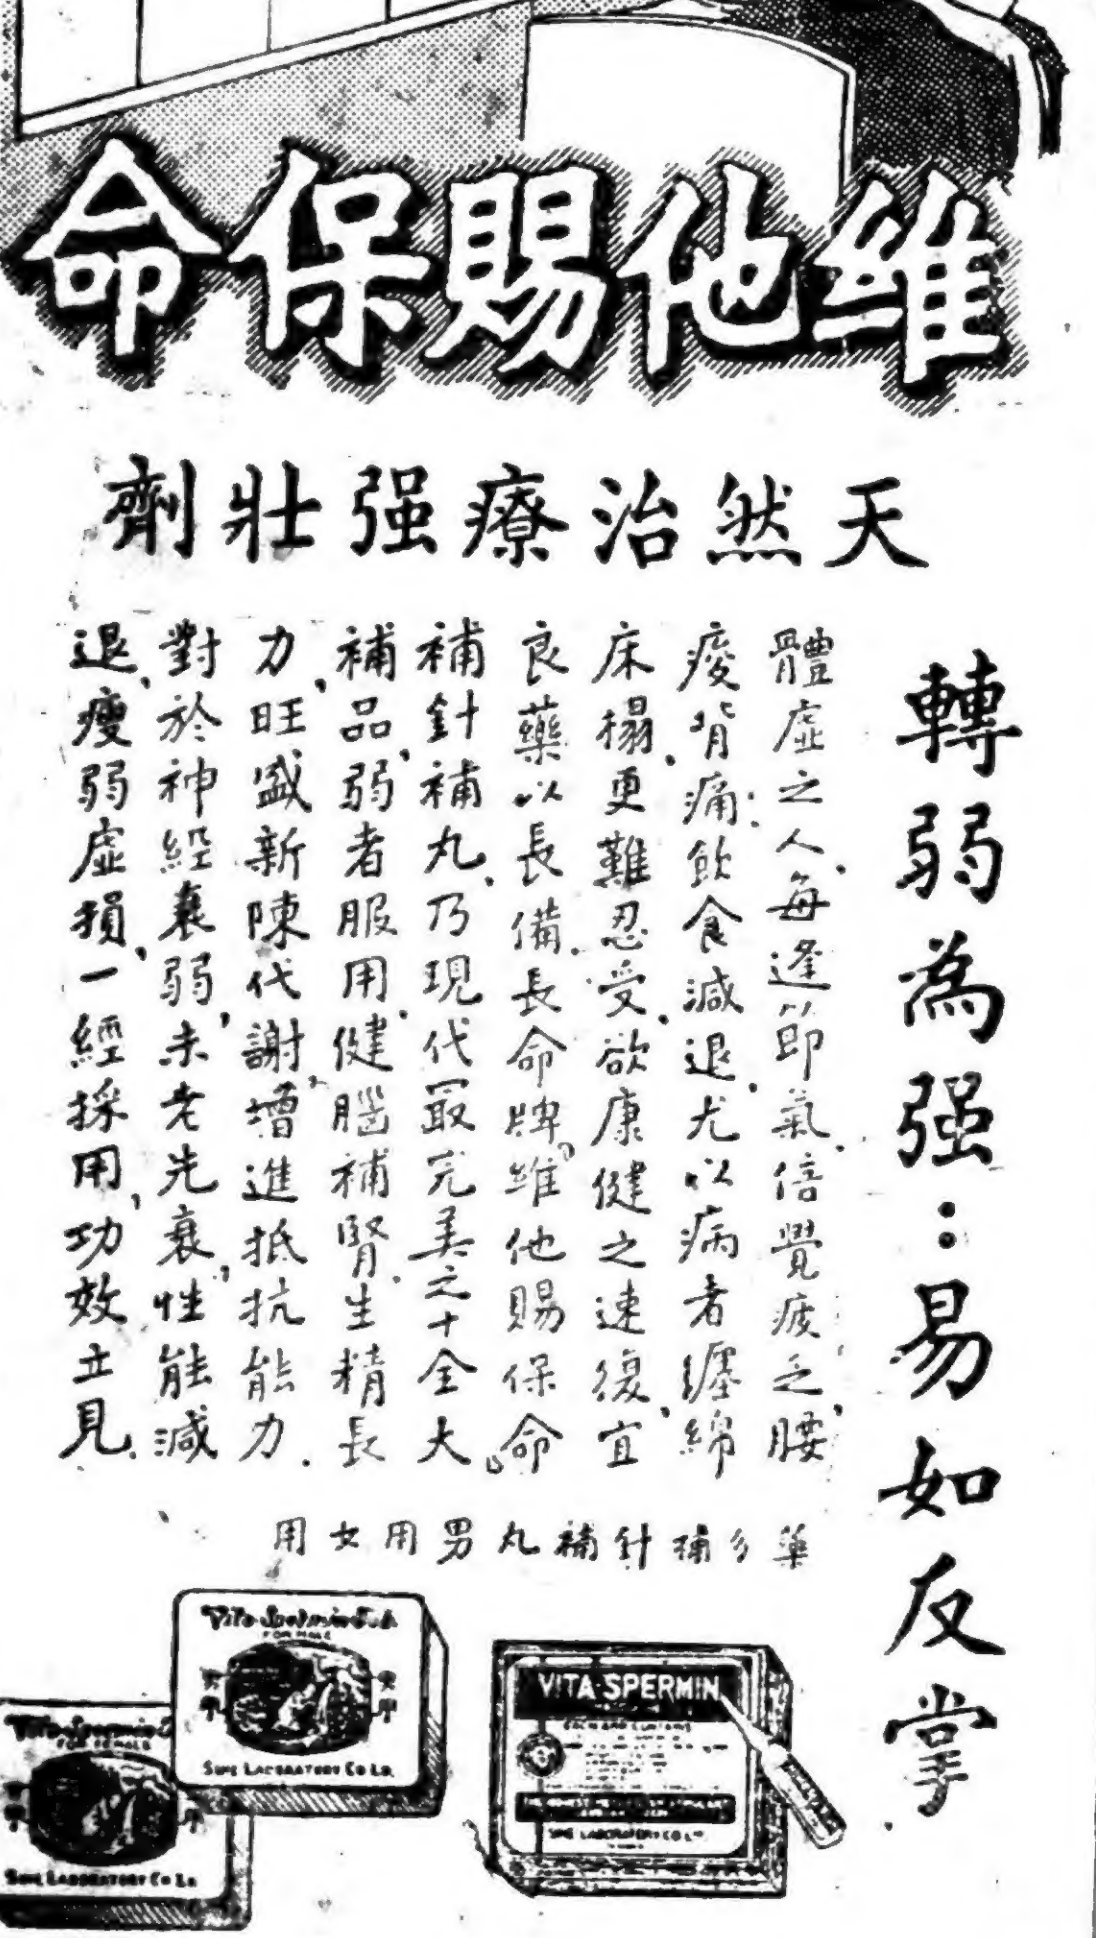 維他賜保命
天然治療强壯劑
轉弱為强：易如反掌
體虛之人.每逢節氣.倍覺疲乏,腰
痠背痛:飲食減退.尤以病者纏綿
床榻.更難忍受.欲康健之速復,宜
良藥以長備.長命牌,維他賜保命
補針補丸.乃現代最完美之十全大
補品.弱者服用.健腦補腎.生精長
力,旺盛新陳代謝,增進抵抗能力.
對於神經衰弱,未老先衰,性能減
退,瘦弱虛損,一經採用,功效立見.
藥分補針補丸男用女用
Vita-Spermin
FOR MALE
SINE LABORATORY CO LD.
FOR FEMALE
SINE LABORATORY CO LD.
VITA-SPERMIN
SINE LABORATORY CO LTD.